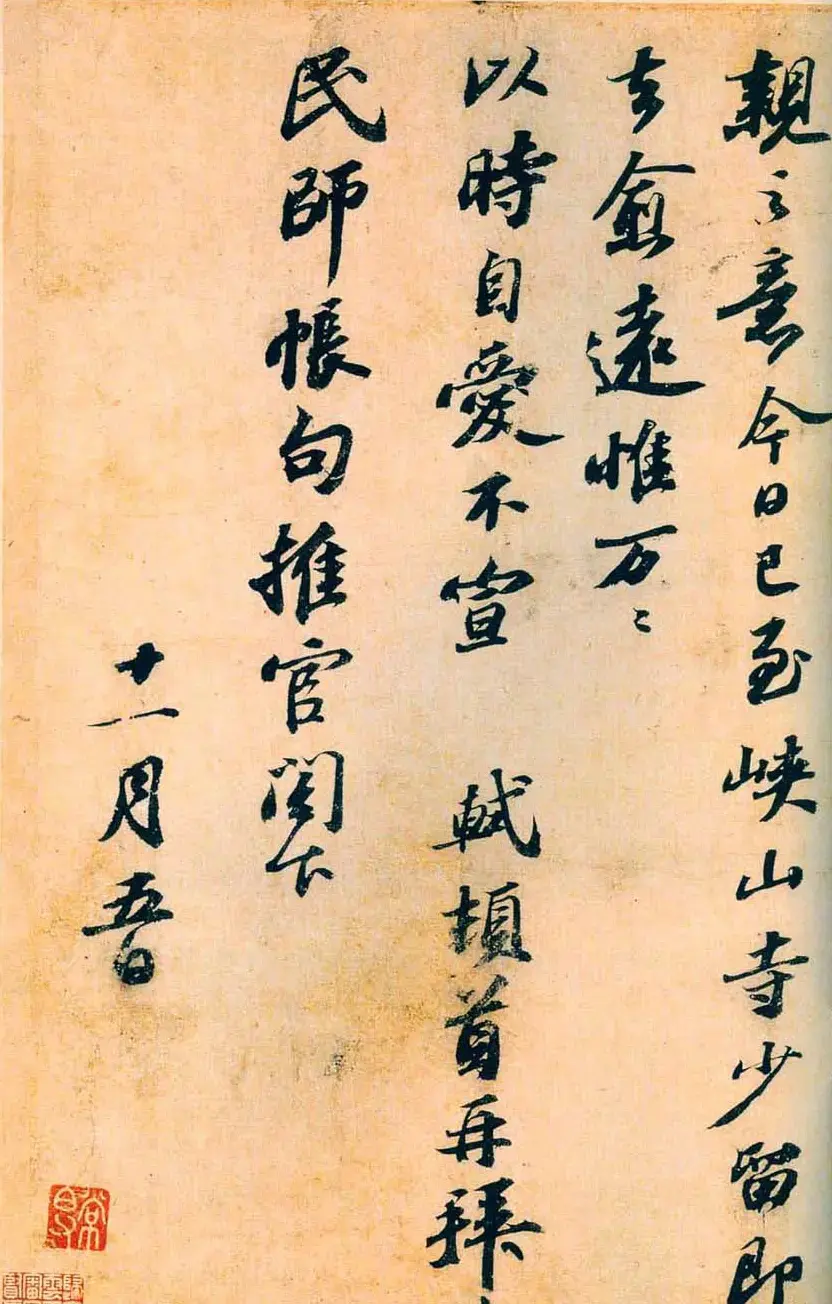 親之意今日已至峽山寺少留即
去愈遠惟万〻
以時自愛不宣 軾頓首再拜
民師帳句推官閤下
十一月五日